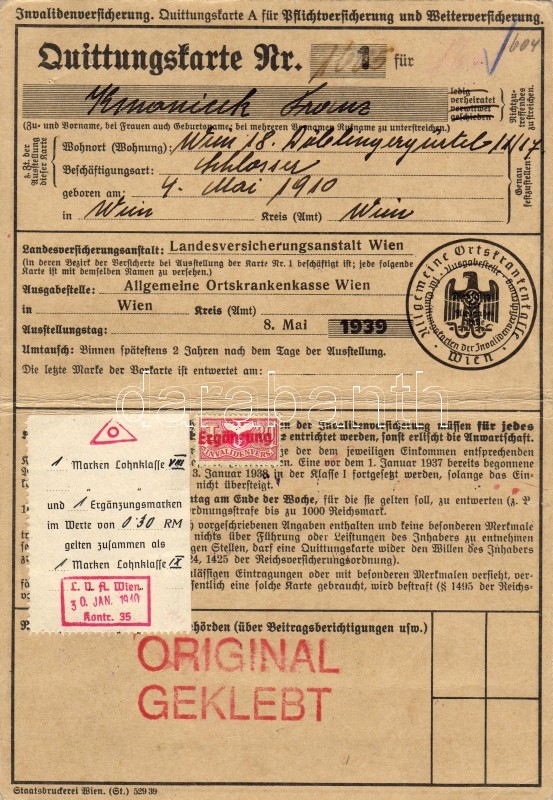 Invalidenversicherung. Quittungskarte A für Pflichtversicherung und Weiterversicherung.
604
Quittungskarte Nr. 1 für
Franz
ledig
verheiratet
verwitwet
geschieden
Nichtzutreffendes zu streichen.
(Zu- und Vorname, bei Frauen auch Geburtsname; bei mehreren Vornamen Rufname zu unterstreichen.)
z. Zt. der Ausstellung dieser Karte
Wohnort (Wohnung): Wien 18. Döblingergürtel
Beschäftigungsart: Schlosser
geboren am: 4. Mai 1910
in Wien Kreis (Amt) Wien
Genau festzustellen!
Landesversicherungsanstalt: Landesversicherungsanstalt Wien
(in deren Bezirk der Versicherte bei Ausstellung der Karte Nr. 1 beschäftigt ist; jede folgende
Karte ist mit demselben Namen zu versehen.)
Ausgabestelle: Allgemeine Ortskrankenkasse Wien
in Wien Kreis (Amt)
Ausstellungstag: 8. Mai 1939
Umtausch: Binnen spätestens 2 Jahren nach dem Tage der Ausstellung.
Die letzte Marke der Vorkarte ist entwertet am:
Allgemeine Ortskrankenkasse
Wien
darabanth
en der Invalidenversicherung müssen für jedes
z entrichtet werden, sonst erlischt die Anwartschaft.
Ergänzung
INVALIDENVERS.
der jeweiligen Einkommen entsprechenden
Eine vor dem 1. Januar 1937 bereits begonnene
3. Januar 1938 in der Klasse I fortgesetzt werden, solange das Ein-
nicht übersteigt.
ntag am Ende der Woche, für die sie gelten soll, zu entwerten (z. B
Ordnungsstrafe bis zu 1000 Reichsmark.
vorgeschriebenen Angaben enthalten und keine besonderen Merkmale
nichts über Führung oder Leistungen des Inhabers zu entnehmen
igen Stellen, darf eine Quittungskarte wider den Willen des Inhabers
24, 1425 der Reichsversicherungsordnung).
ulässigen Eintragungen oder mit besonderen Merkmalen versieht, ver-
esentlich eine solche Karte gebraucht, wird bestraft (§ 1495 der Reichs-
1 Marken Lohnklasse VIII
" "
und 1 Ergänzungsmarken
im Werte von 0'30 RM
gelten zusammen als
1 Marken Lohnklasse IX
L. V. A. Wien.
30. JAN. 1940
Kontr. 35
ehörden (über Beitragsberichtigungen usw.)
ORIGINAL
GEKLEBT
Staatsdruckerei Wien. (St.) 529 39